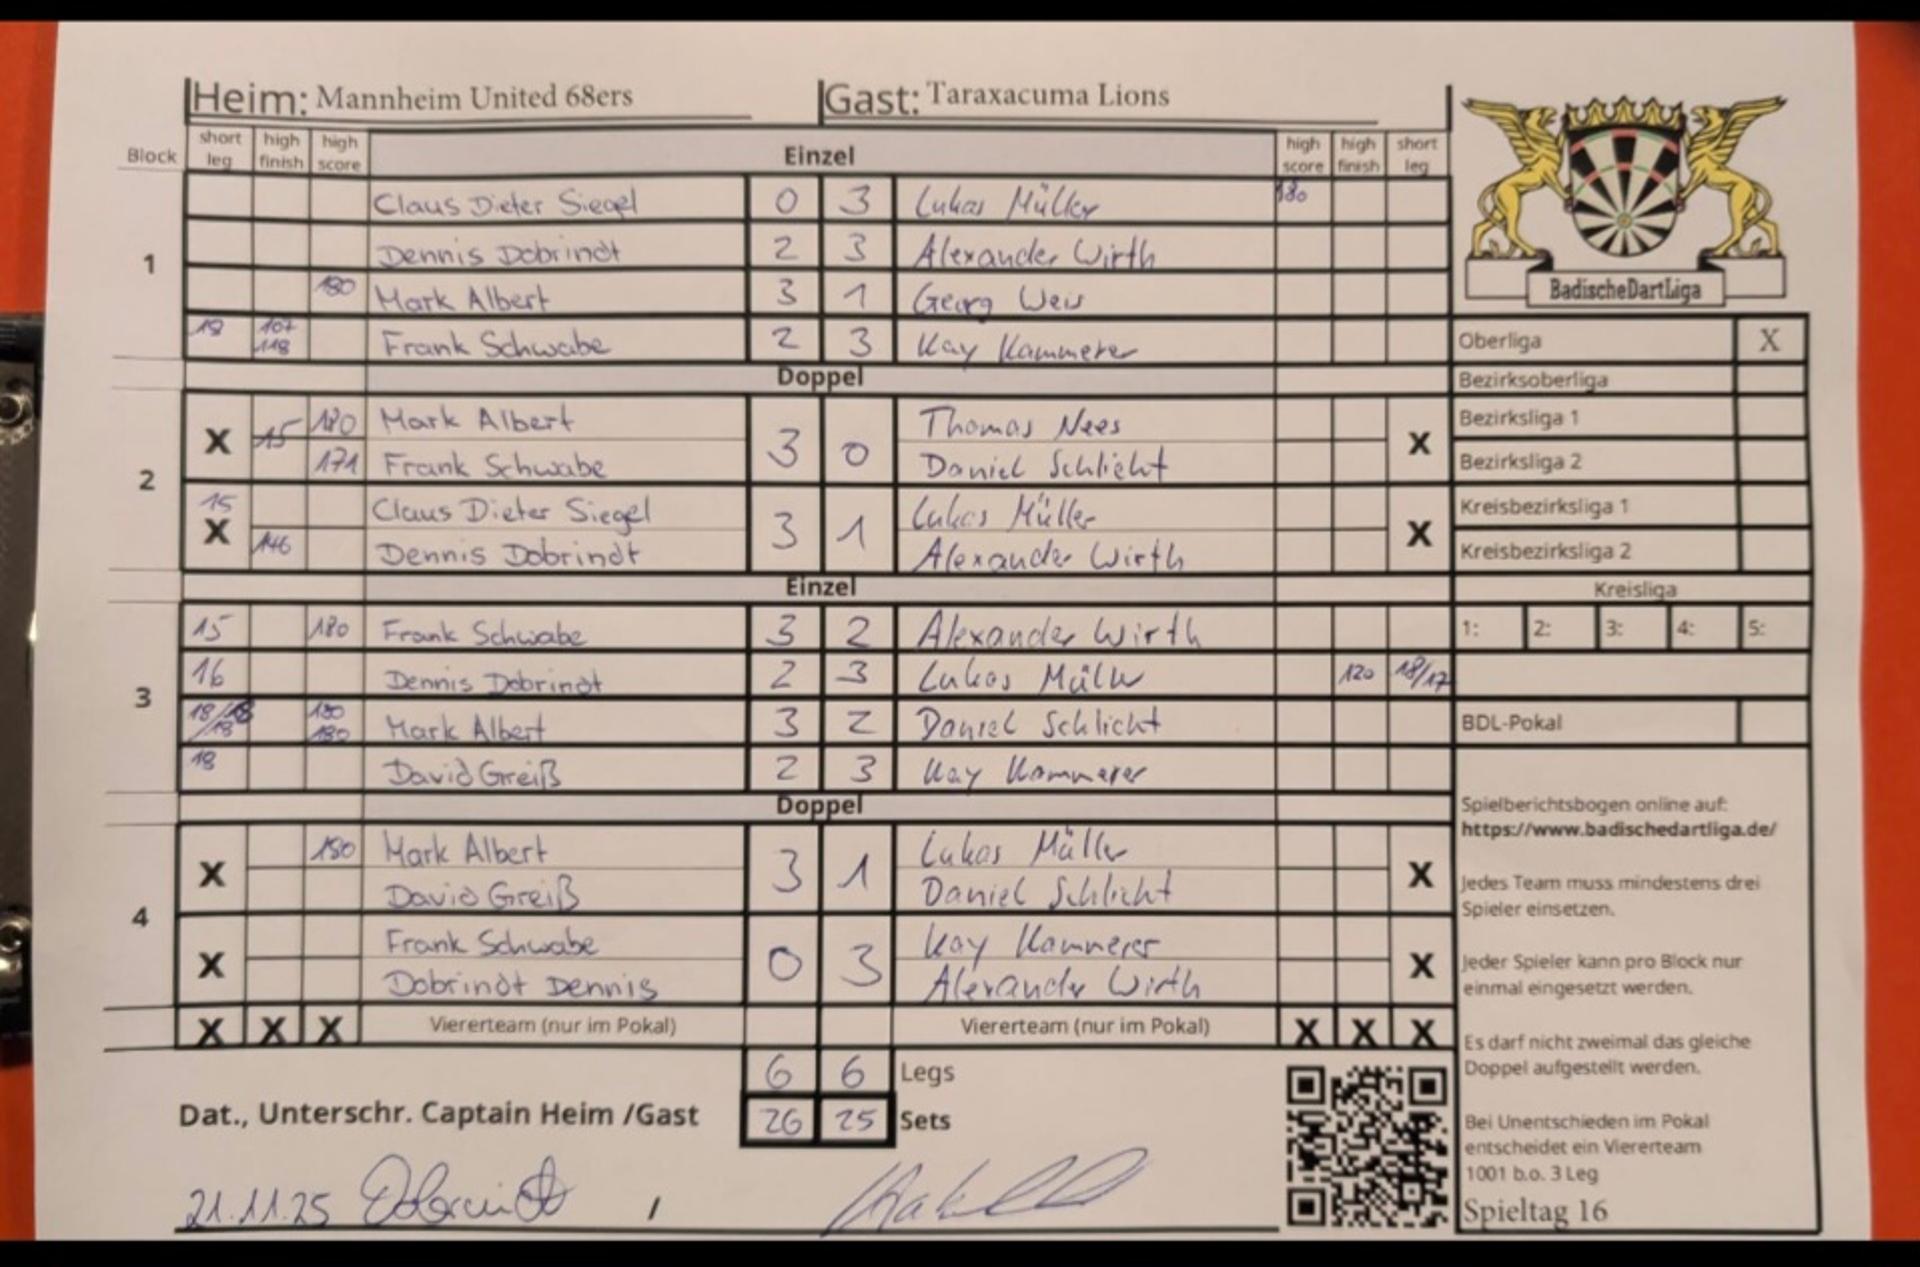 Heim: Mannheim United 68ers Gast: Taraxacuma Lions
Block short leg high finish high score Einzel high score high finish short leg
1
Claus Dieter Siegel 0 3 Lukas Müller 180
Dennis Dobrindt 2 3 Alexander Wirth
180 Mark Albert 3 1 Georg Weis
18 107 118 Frank Schwabe 2 3 Kay Kammerer
Doppel
2
X 15 180 Mark Albert 3 0 Thomas Nees X
171 Frank Schwabe Daniel Schlicht
15 X Claus Dieter Siegel 3 1 Lukas Müller X
146 Dennis Dobrindt Alexander Wirth
Einzel
3
15 180 Frank Schwabe 3 2 Alexander Wirth
16 Dennis Dobrindt 2 3 Lukas Müller 120 18/17
18/18/18 180 180 Mark Albert 3 2 Daniel Schlicht
18 David Greiß 2 3 Kay Kammerer
Doppel
4
X 180 Mark Albert 3 1 Lukas Müller X
David Greiß Daniel Schlicht
X Frank Schwabe 0 3 Kay Kammerer X
Dobrindt Dennis Alexander Wirth
X X X Viererteam (nur im Pokal) Viererteam (nur im Pokal) X X X
6 6 Legs
Dat., Unterschr. Captain Heim /Gast 26 25 Sets
21.11.25 Dobrindt /
BadischeDartLiga
Oberliga X
Bezirksoberliga
Bezirksliga 1
Bezirksliga 2
Kreisbezirksliga 1
Kreisbezirksliga 2
Kreisliga
1: 2: 3: 4: 5:
BDL-Pokal
Spielberichtsbogen online auf:
https://www.badischedartliga.de/
Jedes Team muss mindestens drei
Spieler einsetzen.
Jeder Spieler kann pro Block nur
einmal eingesetzt werden.
Es darf nicht zweimal das gleiche
Doppel aufgestellt werden.
Bei Unentschieden im Pokal
entscheidet ein Viererteam
1001 b.o. 3 Leg
Spieltag 16